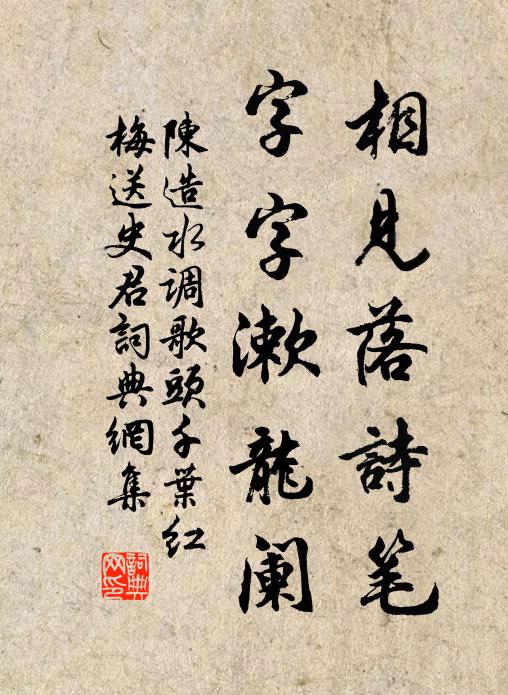 相見落詩笔
字字漱龍阑
陳造水調歌頭千葉红
梅送史君詞典網集
詞典网印